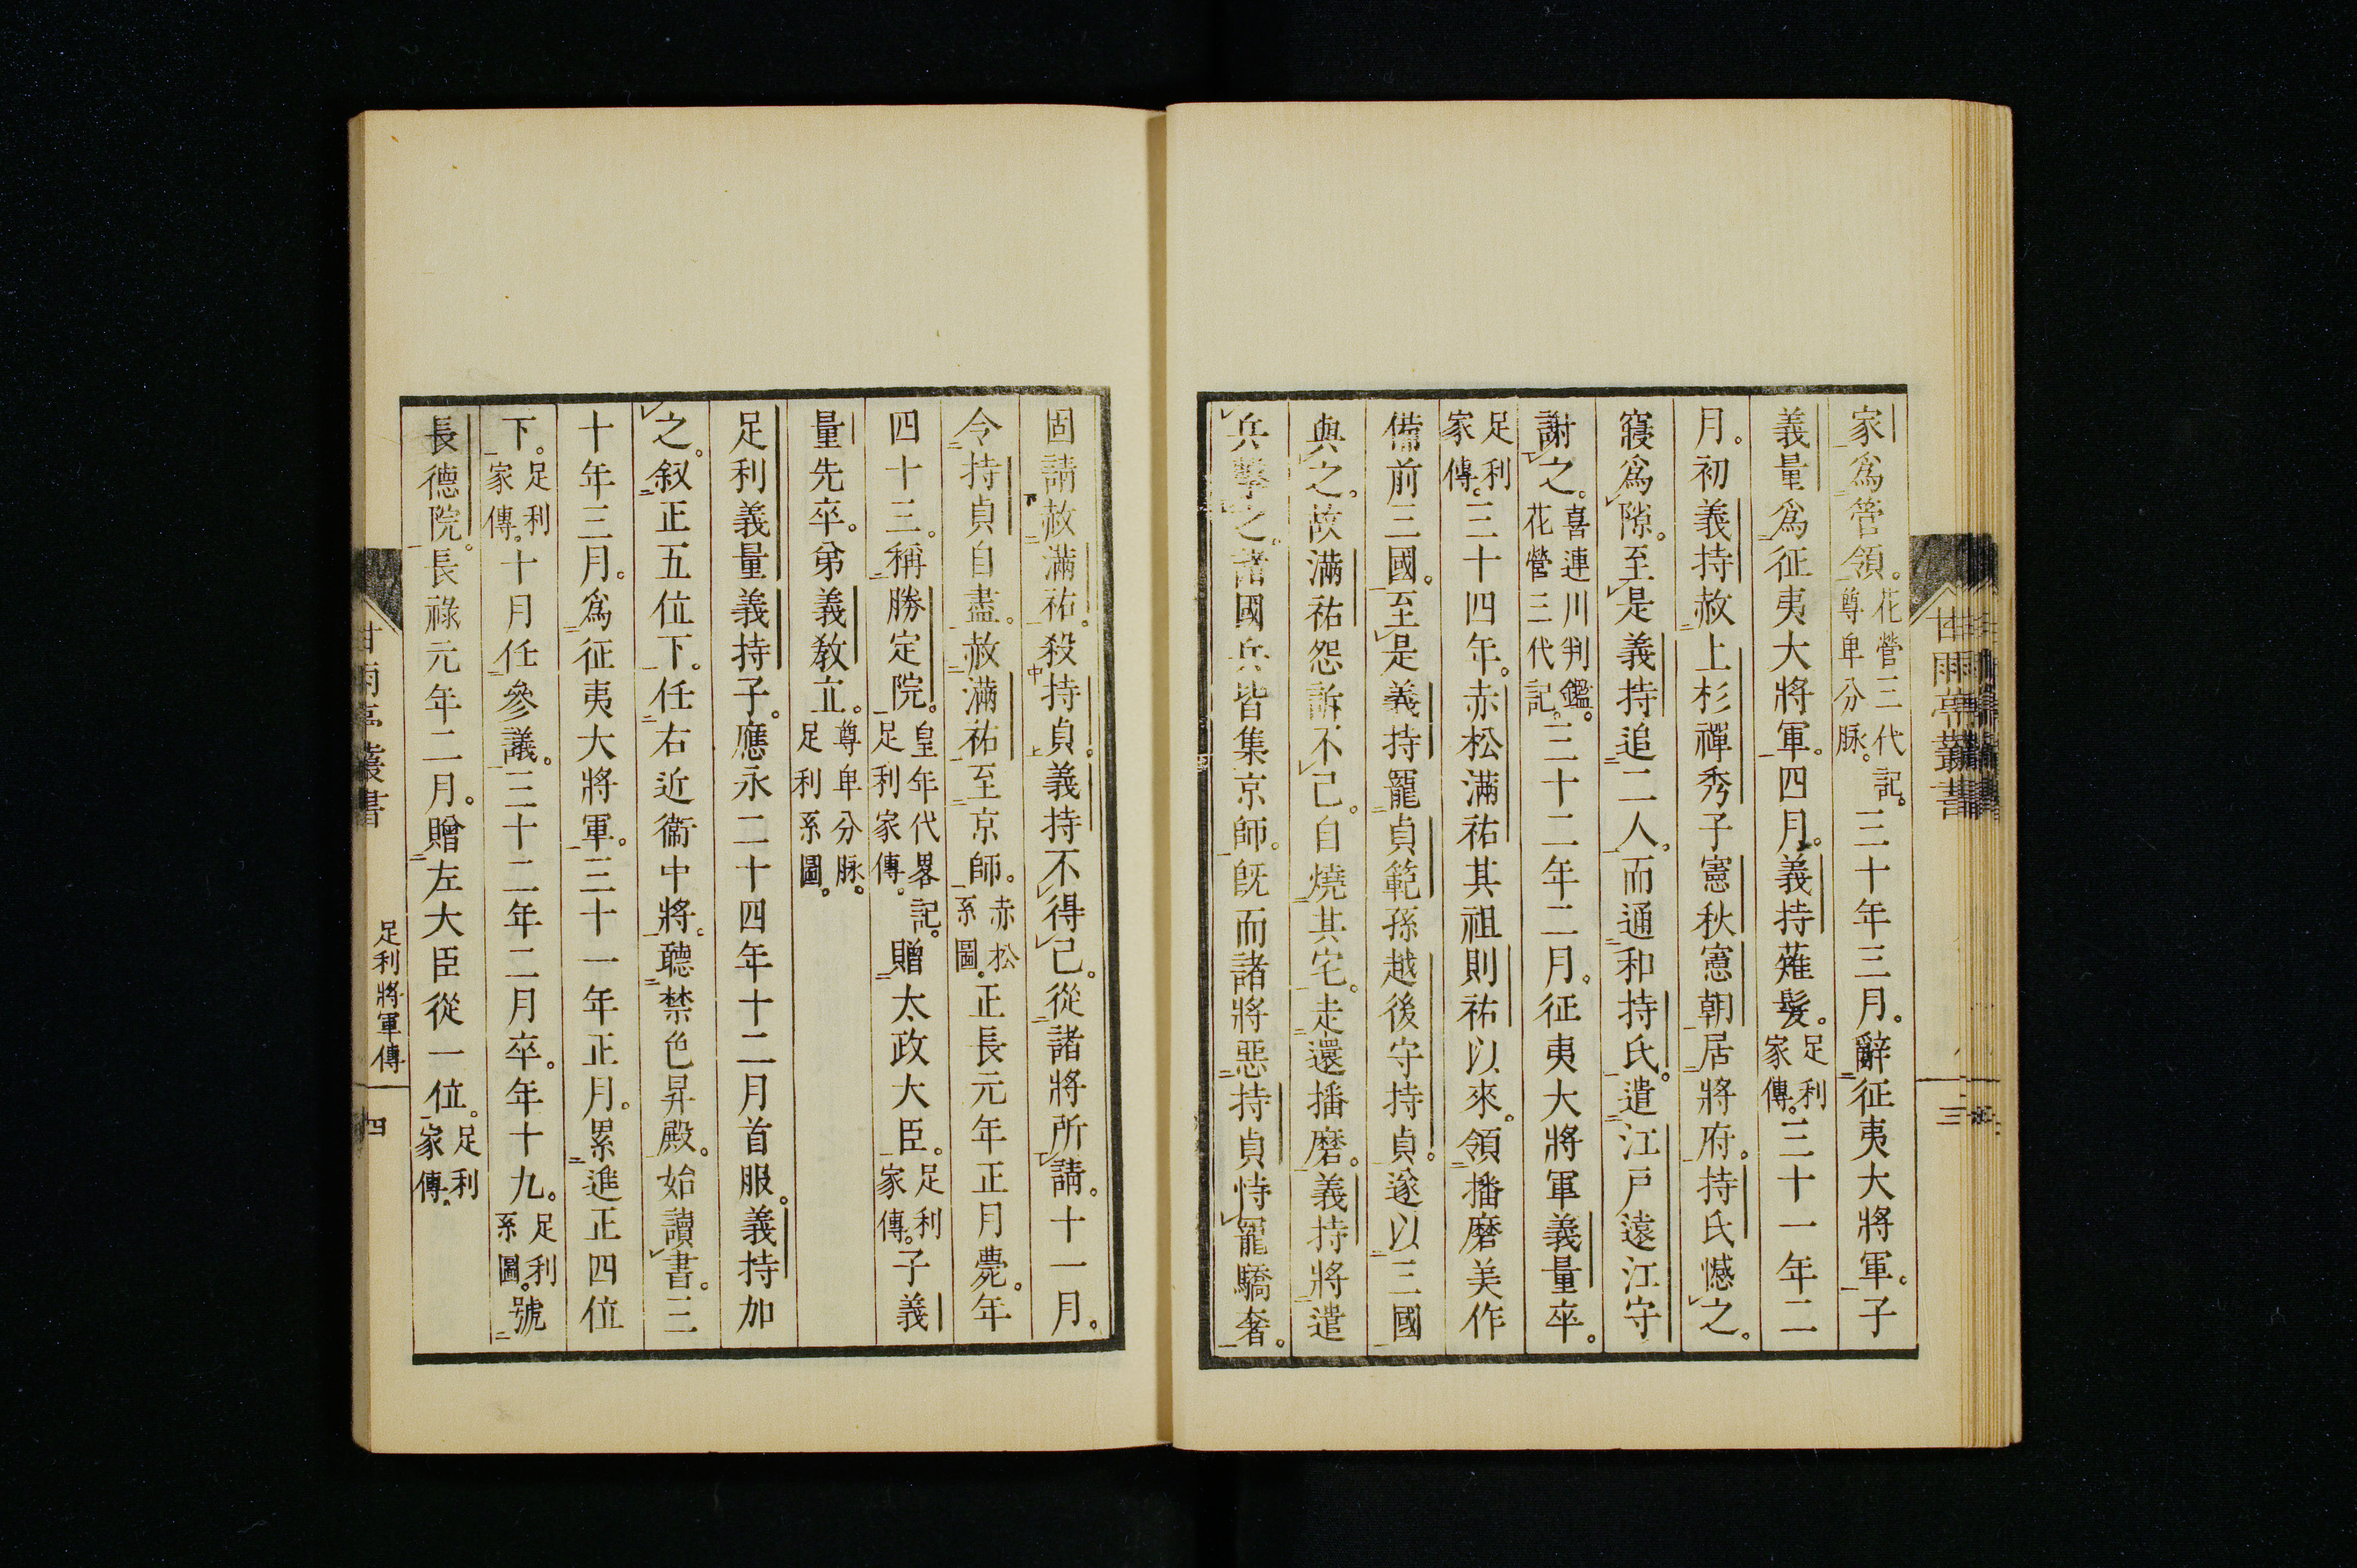 家爲管領。花營三代記。尊卑分脉。三十年三月。辭征夷大將軍。子
義量爲征夷大將軍。四月。義持薙髮。足利家傳。三十一年二
月。初義持赦上杉禪秀子憲秋憲朝居將府。持氏憾之。
寢爲隙。至是義持追二人。而通和持氏。遣江戸遠江守
謝之。喜連川判鑑。花營三代記。三十二年二月。征夷大將軍義量卒。
足利家傳。三十四年。赤松滿祐其祖則祐以來。領播磨美作
備前三國。至是義持寵貞範孫越後守持貞。遂以三國
與之。故滿祐怨訴不已。自燒其宅。走還播磨。義持將遣
兵擊之。諸國兵皆集京師。既而諸將惡持貞恃寵驕奢。
甘雨亭叢書
三
固請赦滿祐。殺持貞。義持不得已。從諸將所請。十一月。
令持貞自盡。赦滿祐至京師。赤松系圖。正長元年正月薨。年
四十三。稱勝定院。皇年代畧記。足利家傳。贈太政大臣。足利家傳。子義
量先卒。弟義教立。尊卑分脉。足利系圖。
足利義量義持子。應永二十四年十二月首服。義持加
之。叙正五位下。任右近衞中將。聽禁色昇殿。始讀書。三
十年三月。爲征夷大將軍。三十一年正月。累進正四位
下。足利家傳。十月任參議。三十二年二月卒。年十九。足利系圖。號
長德院。長祿元年二月。贈左大臣從一位。足利家傳。
甘雨亭叢書
足利將軍傳
四